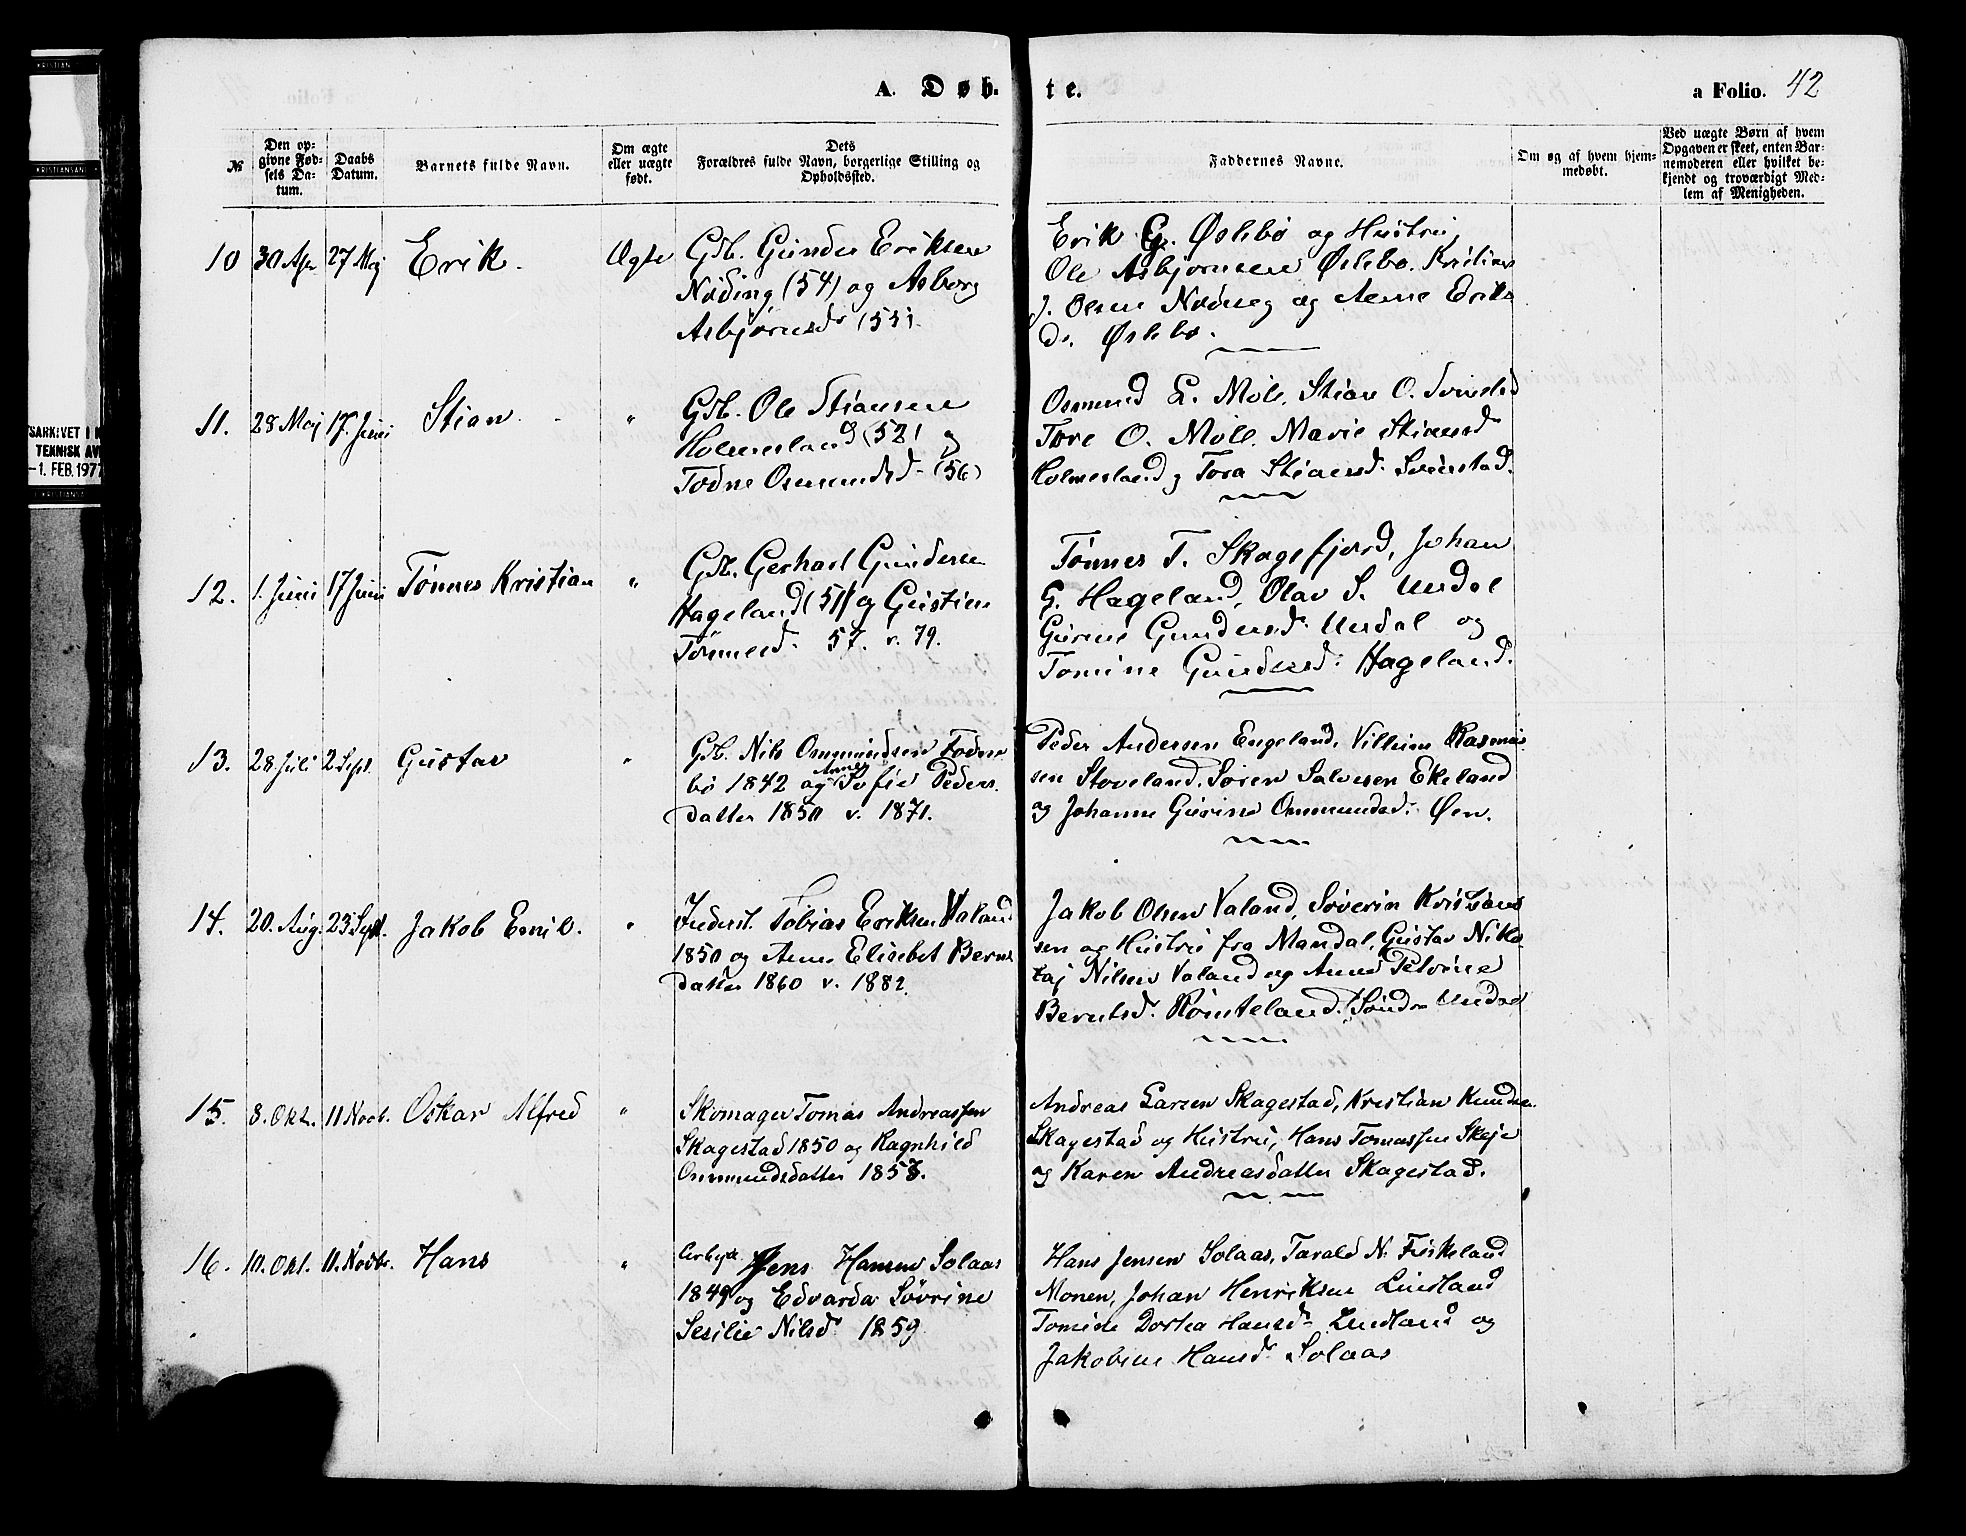 A. Døb- te. a Folio. 42
№
Den op-
givne Fød-
sels Da-
tum.
Daabs
Datum.
Barnets fulde Navn.
Om ægte
eller uægte
født.
Dets
Forældres fulde Navn, borgerlige Stilling og
Opholdssted.
Faddernes Navne.
Om og af hvem hjem-
medøbt.
Ved uægte Børn af hvem
Opgaven er skeet, enten Bar-
nemoderen eller hvilket be-
kjendt og troværdigt Med-
lem af Menigheden.
10 30 Apr 27 Maj Erik. Ægte
Gdb. Gunder Eriksen
Nøding (54) og Asborg
Asbjørnsdr (55).
Erik G. Øslebø og Hustru,
Ole Asbjørnsen Øslebø. Kristians
J. Olsen Nøding og Anne Eriks
dr. Øslebø.
11. 28 Maj 17. Juni Stian. "
Gdb. Ole Stiansen
Holmesland (52) og
Todne Osmundsd. (56)
Osmund L. Møll, Stian O. Svinstad
Tore O. Møll. Marie Stiansd
Holmesland og Tora Stiansd. Svinstad.
12. 1. Juni 17 Juni Tønnes Kristian "
Gdb. Gerhard Gundersen
Hageland (51) og Gustine
Tønnesd. 57. v. 79.
Tønnes T. Skagefjord, Johan
G. Hageland, Olav S. Undal
Gurine Gundersd. Undal og
Tomine Gundersd: Hageland.
13. 28 Juli 2 Sept. Gustav "
Gdb. Nils Ommundsen Todne
bø 1842 og Anne Sofie Peders.
datter 1850 v. 1871.
Peder Andersen Engeland, Vilhelm Rasmus
sen Stoveland. Søren Salvesen Ekeland
og Johanne Gurine Ommundsd. Øen.
14. 20. Aug. 23 Sept. Jakob Emil. "
Inderst. Tobias Eriksen Valand
1850 og Anne Elisebet Bernt
datter 1860 v. 1882.
Jakob Olsen Valand, Søverin Kristians
sen og Hustru fra Mandal, Gustav Niko
laj Nilsen Valand og Anne Petrine
Berntsd. Rømteland. Søndre Undal
15. 8. Okt. 11 Novb. Oskar Alfred "
Skomager Tomas Andreassen
Skagestad 1850 og Ragnhild
Ommundsdatter 1857.
Andreas Larsen Skagestad, Kristian Knudsen
Skagestad og Hustru, Hans Tomassen Skeje
og Karen Andreasdatter Skagestad.
16. 10. Okt. 11. Novbr. Hans "
Arbejd. Jens Hansen Solaas
1849 og Edvarda Søvrine
Sesilie Nilsd. 1859
Hans Jensen Solaas, Tarald N. Fiskeland
Monen, Johan Henriksen Lindland
Tomine Dortea Hansd. Lindland og
Jakobine Hansd. Solaas
TEKNISK AV
-1. FEB. 1977